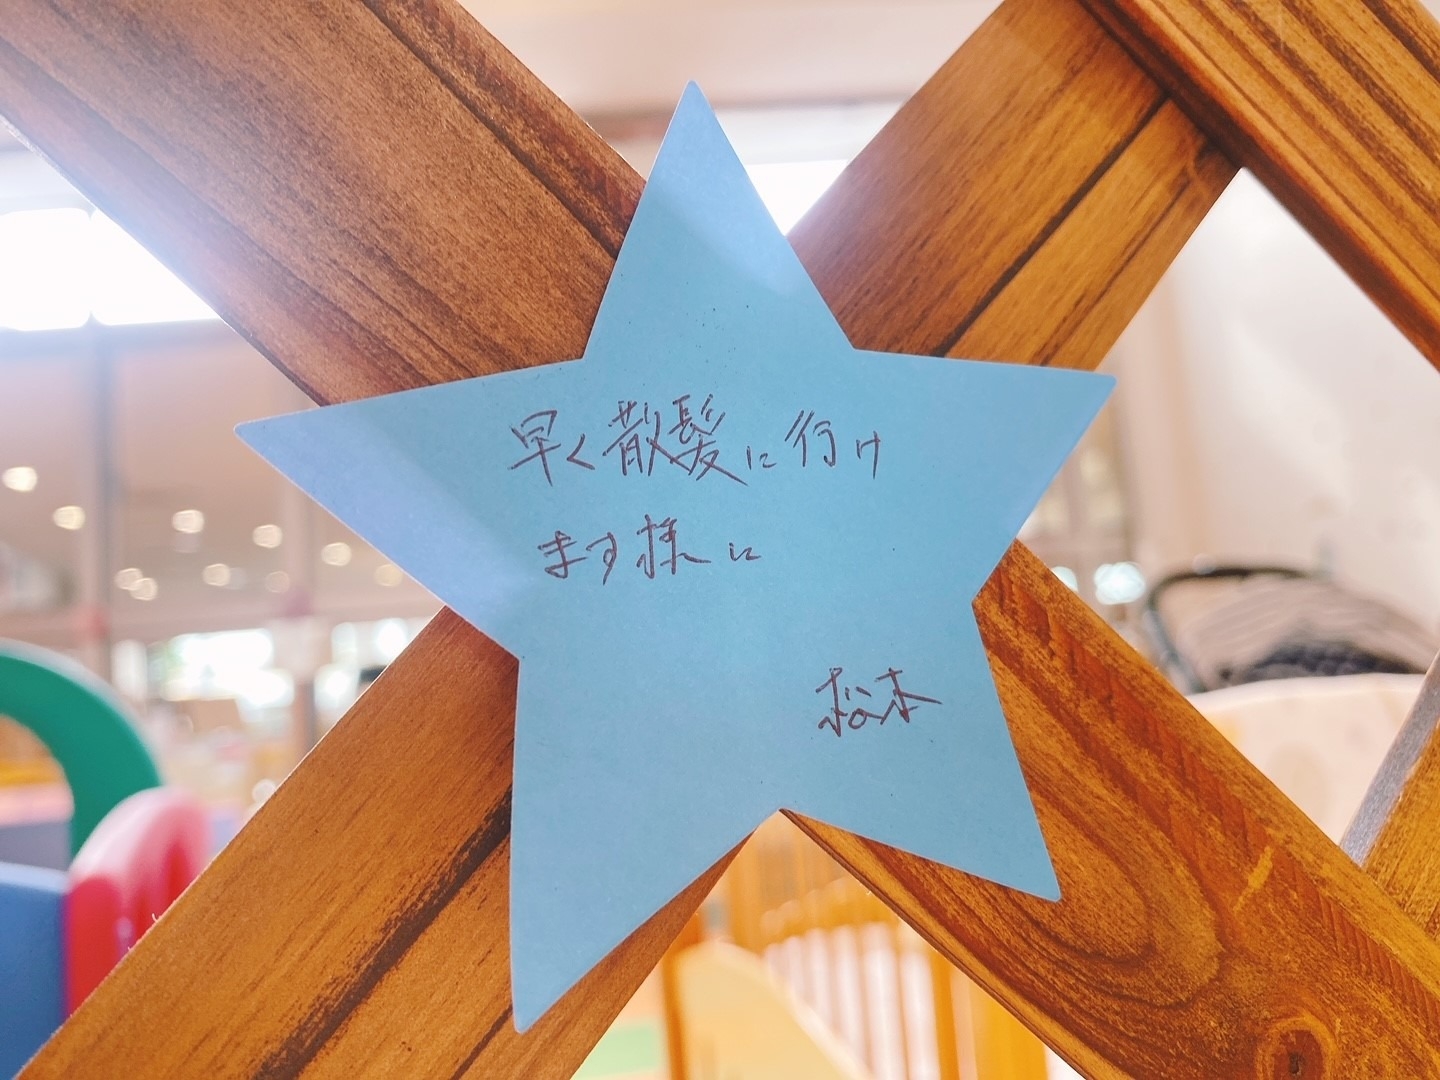 早く散髪に行け
ます様に
松本